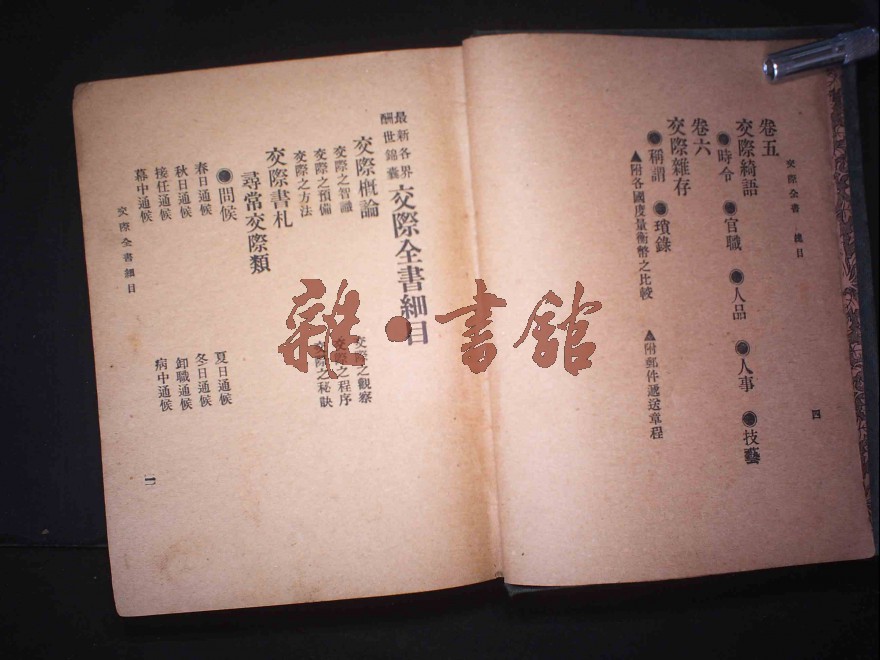 交際全書 總目
卷五
交際綺語
●時令 ●官職 ●人品 ●人事 ●技藝
卷六
交際雜存
●稱謂 ●瑣錄
▲附各國度量衡幣之比較 ▲附郵件遞送章程
四
最新各界
酬世錦囊
交際全書細目
交際概論
交際之智識 交際之觀察
交際之預備 交際之程序
交際之方法 交際之秘訣
交際書札
尋常交際類
●問候
春日通候 夏日通候
秋日通候 冬日通候
接任通候 卸職通候
幕中通候 病中通候
交際全書細目
一
雜·書館